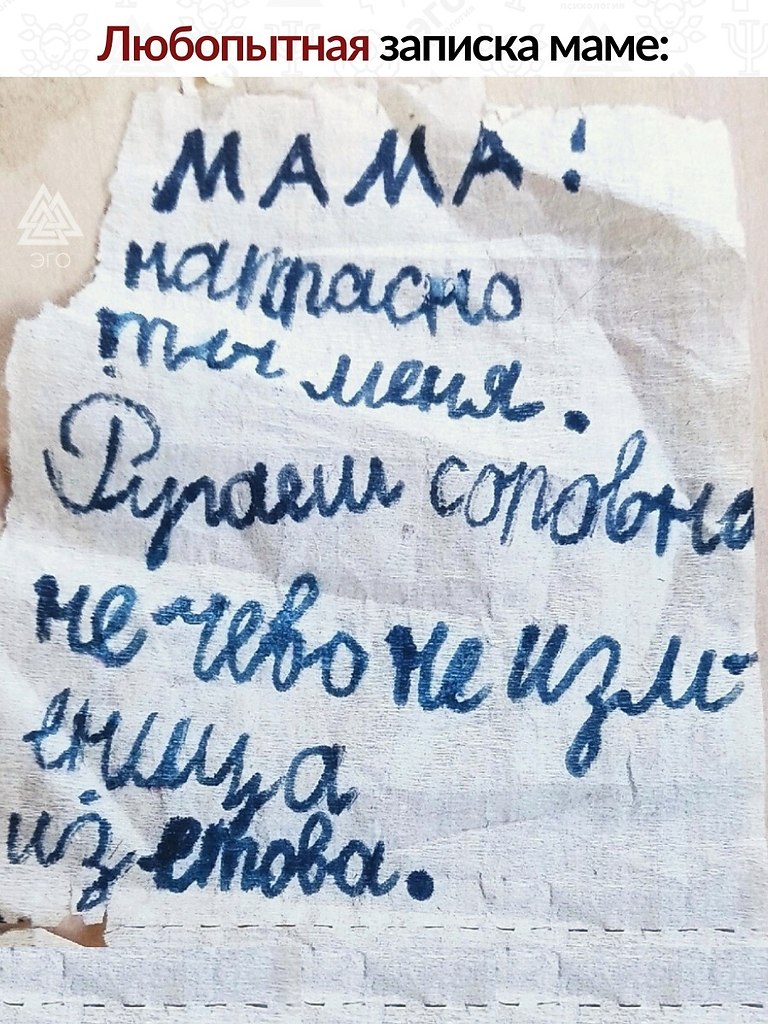 Любопытная записка маме:
МАМА!
напрасно
ты меня.
Ругаеш соровно
не чево не изм-
еница
из етова.
ЭГО